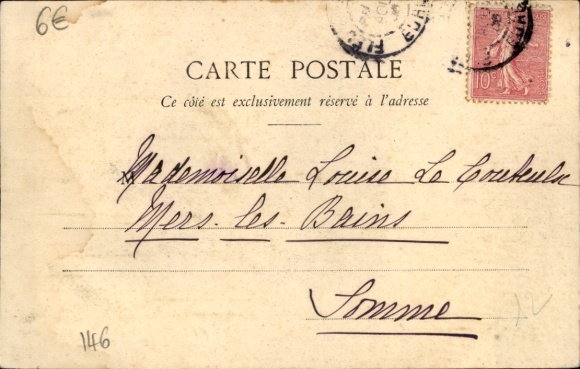 6€
10c
CARTE POSTALE
Ce côté est exclusivement réservé à l'adresse
Mademoiselle Louise Le Couteulx
Mers-les-Bains
Somme
146